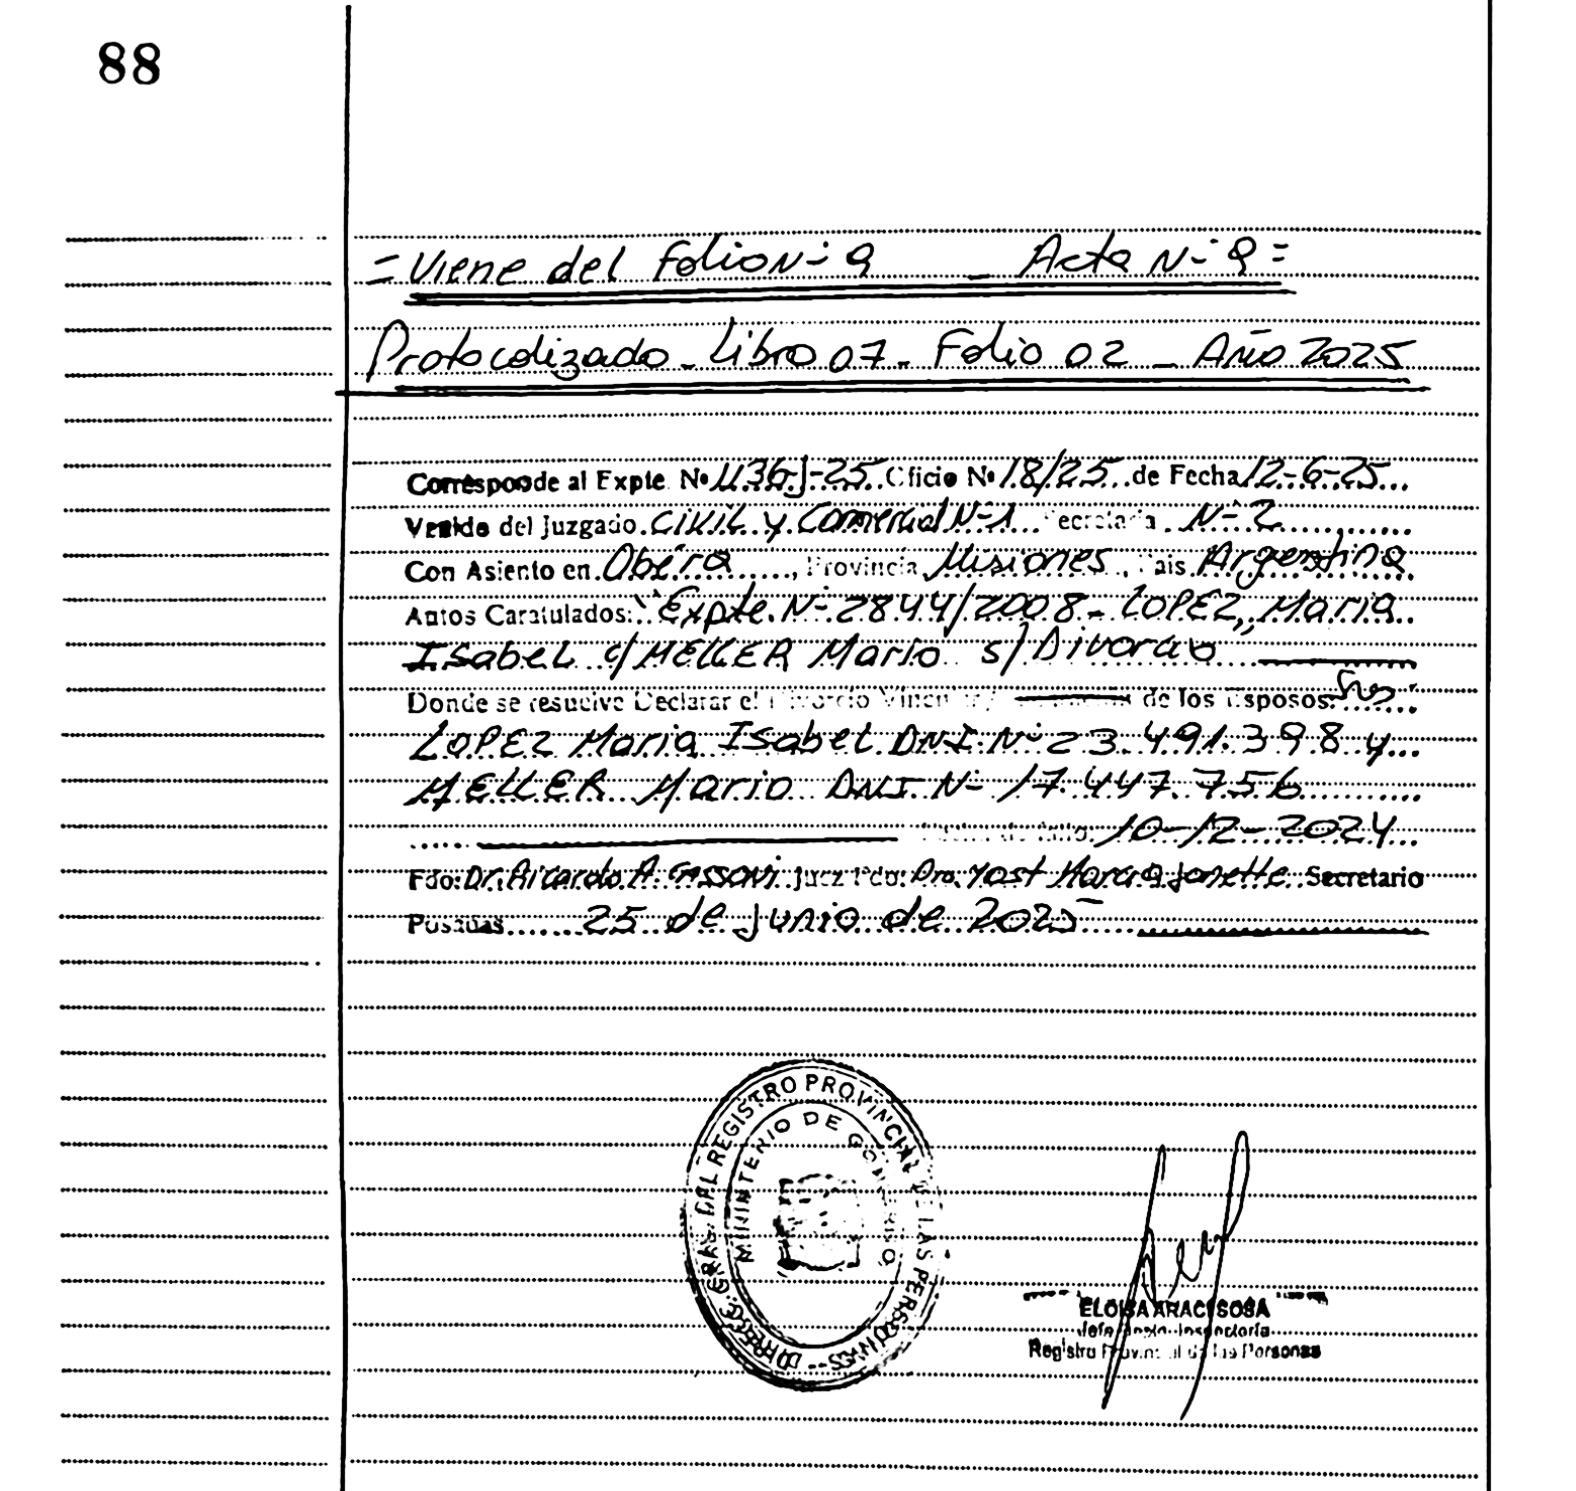 88
= Viene del Folio Nº 9 _ Acta Nº 9 =
Protocolizado - Libro 07 - Folio 02 - Año 2025
Corresponde al Expte. Nº 1136-J-25 Oficio Nº 18/25 de Fecha 12-6-25
Venido del Juzgado Civil y Comercial Nº 1 Secretaria Nº 2
Con Asiento en Oberá, Provincia Misiones, Pais Argentina
Autos Caratulados: "Expte. Nº 2844/2008 - LOPEZ, Maria
Isabel c/ MELLER Mario s/ Divorcio
Donde se resuelve Declarar el Divorcio Vincular de los Esposos: Sres.
LOPEZ Maria Isabel DNI. Nº 23.491.398 y
MELLER Mario DNI Nº 17.447.756
10-12-2024
Fdo: Dr. Ricardo A. Juez Fdo: Dra. Yost Marcia Janette Secretario
Posadas 25 de Junio de 2025
DIRECC. GRAL. DEL REGISTRO PROVINCIAL DE LAS PERSONAS
MINISTERIO DE GOBIERNO
ELOISA ARACI SOSA
Jefe Dpto. Inspectoría
Registro Provincial de las Personas